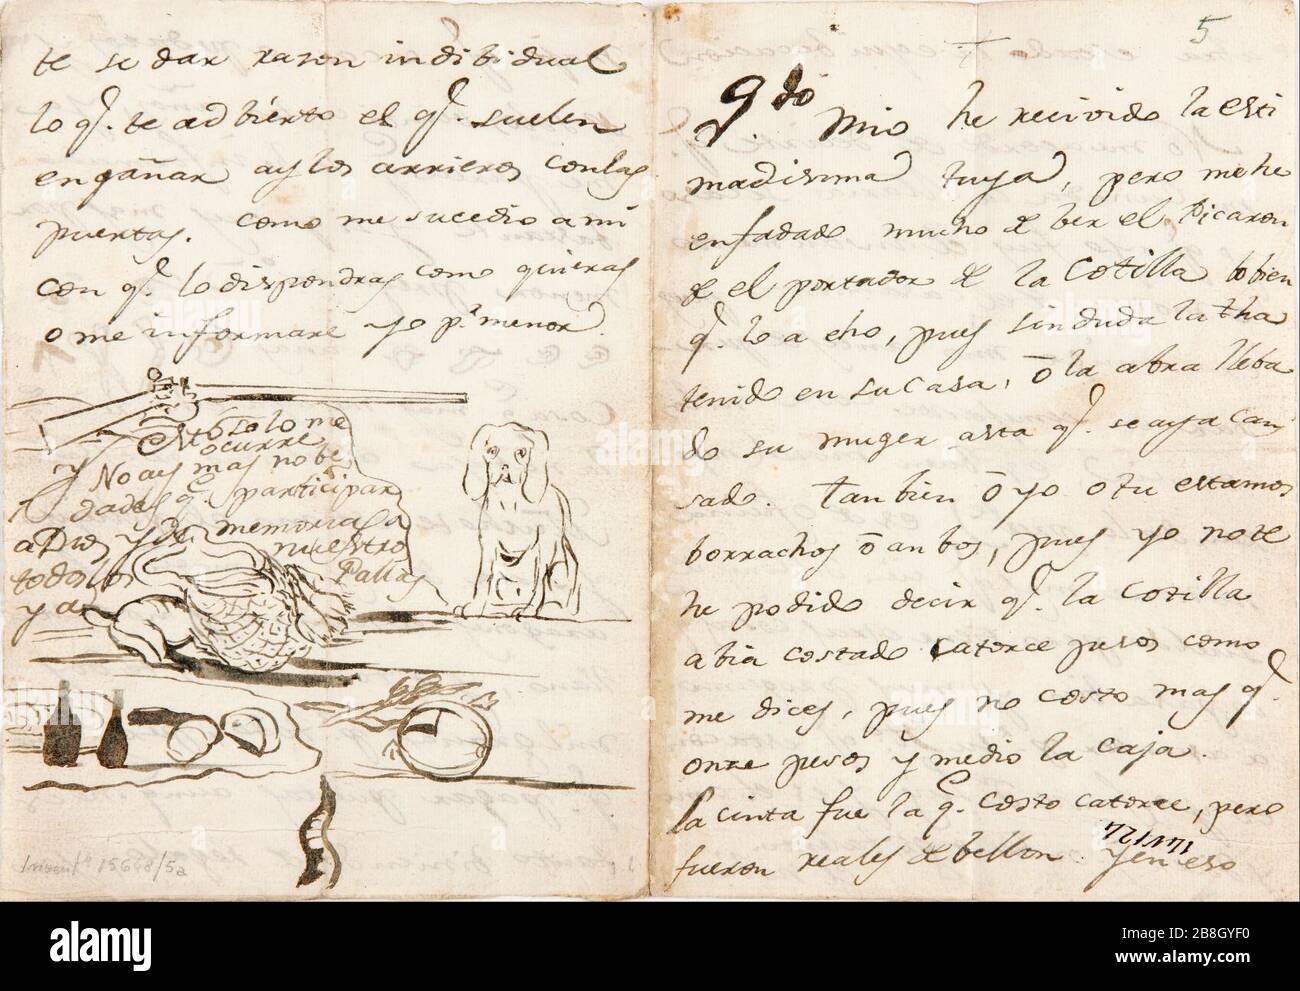 te se dar razon indibidual
lo q.e te adbierto el q.e suelen
engañar ay los arrieros con las
puertas. como me sucedio a mi
con q.e lo dispondras como quieras
o me informare yo p.r menor.
Esto solo me
ocurre
y No ay mas nobe
dades q.e participar
a Dios y de memorias a
todos los nuestro
y a Pallas
Invent.o 15648/5a
5
q.do Mio he recivido la esti
madisima tuya, pero me he
enfadado mucho de ber el Picaron
de el portador de la Cotilla lo bien
q.e lo a eho, pues sin duda la tha
tenido en su casa, ō la abra lleba
do su muger asta q.e se aya can
sado. Tanbien ō yo o tu estamos
borrachos ō anbos, pues yo no te
he podido decir q.e la cotilla
abia costado catorce pesos como
me dices, pues no costo mas q.e
onze pesos y medio la caja
la cinta fue la q.e costo catorce, pero
fueron reales de bellon. y en eso
alamy
Image ID: 2B8GYF0
www.alamy.com